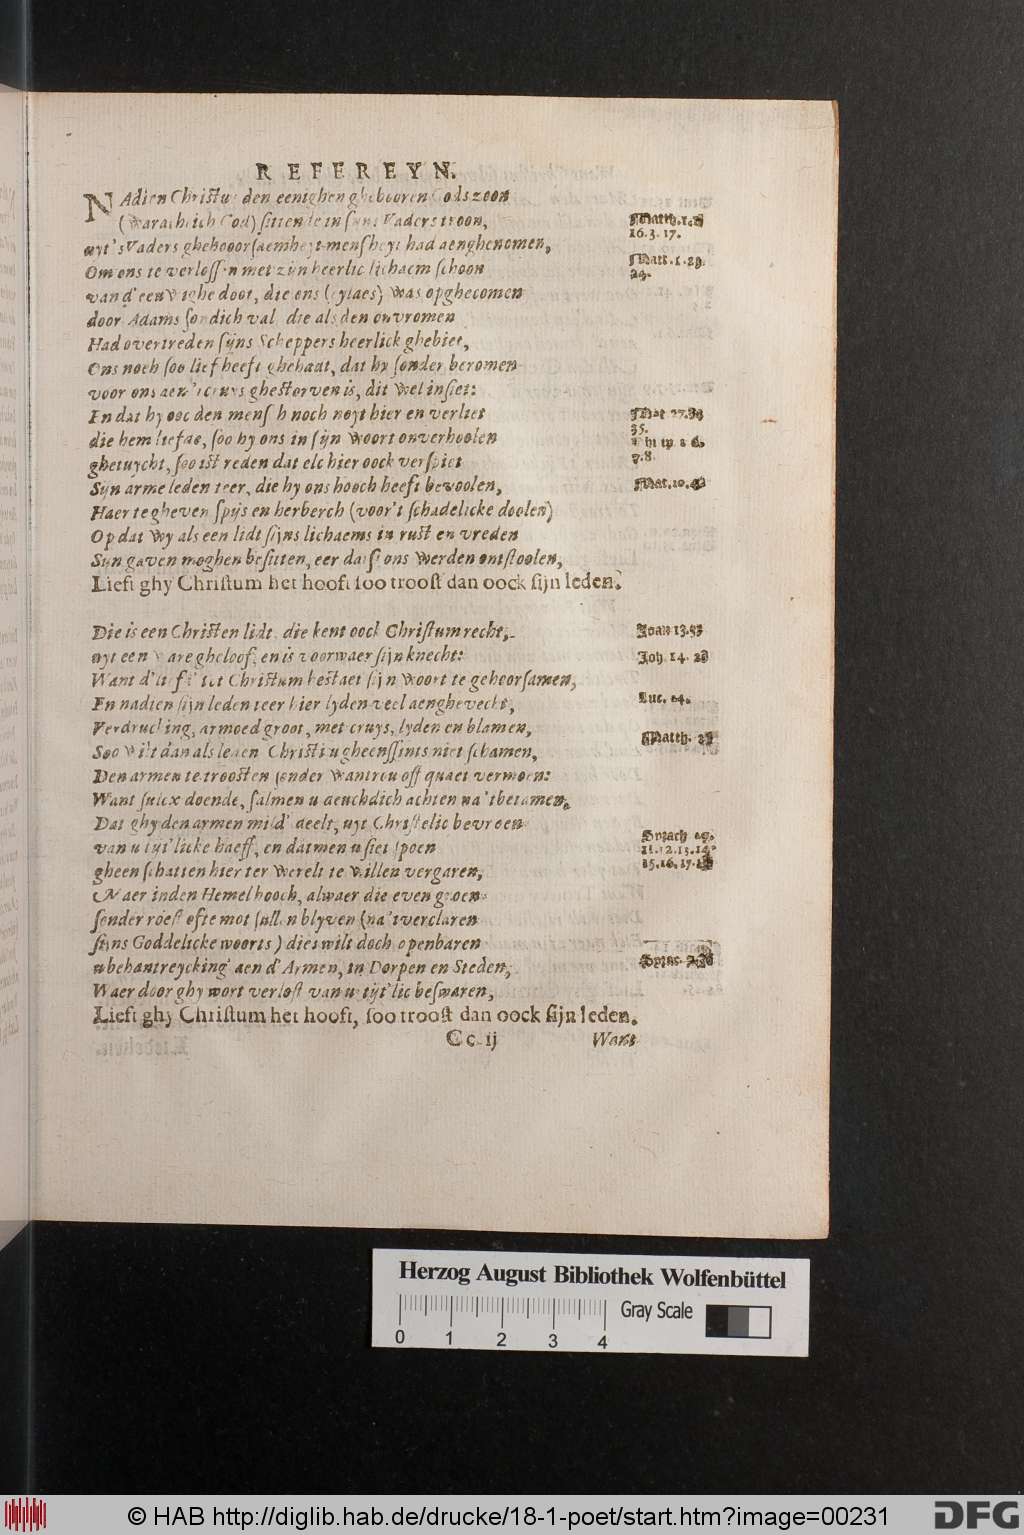 REFEREYN.
NAdien Christus den eenighen ghebooren Gods zoon
(Warachtich God) sittende in sijns Vaders troon,
uyt 's Vaders ghehooorsaemheyt menscheyt had aenghenomen,
Om ons te verlossen met zijn heerlic lichaem schoon
van d' eeuwighe doot, die ons (eylaes) was opghecomen
door Adams sondich val, die als den onvromen
Had overtreden sijns Scheppers heerlick ghebiet,
Ons noch soo lief heeft ghehadt, dat hy sonder beromen
voor ons aen 't cruys ghestorven is, dit wel insiet:
En dat hy ooc den mensch noch noyt hier en verliet
die hem liefde, soo hy ons in sijn woort onverhoolen
ghetuycht, soo ist reden dat elc hier oock verspiet
Sijn arme leden teer, die hy ons hooch heeft bevoolen,
Haer te gheven spijs en herberch (voor't schadelicke doolen)
Op dat wy als een lidt sijns lichaems in rust en vreden
Sijn gaven moghen besitten, eer dat s' ons werden ontstoolen,
Lieft ghy Christum het hooft soo troost dan oock sijn leden.
Matth. 1.
16. 3. 17.
Matt. 1. 29.
24.
Mat. 27.
35.
7. 8.
Mat. 10. 42
Die is een Christen lidt, die kent oock Christum recht,
uyt een ware gheloof, en is voorwaer sijn knecht:
Want d' liefd' tot Christum bestaet sijn woort te gehoorsamen,
En nadien sijn leden teer hier lyden veel aenghevecht,
Verdrucking, armoed groot, met cruys, lyden en blamen,
Soo wilt dan als leden Christi u gheenssints niet schamen,
Den armen te troosten sonder wantrou off quaet vermoen:
Want sulcx doende, salmen u deuchdich achten na 't betamen,
Dat ghy den armen mild' deelt, uyt Christelic bevroen
van u tijt'licke haeff, en datmen u siet spoen
gheen schatten hier ter werelt te willen vergaren,
Maer inden Hemel hooch, alwaer die even groen
sonder roest ofte mot sullen blyven (na 't verclaren
sijns Goddelicke woorts) dies wilt doch openbaren
u behantreycking aen d' Armen, in Dorpen en Steden,
Waer door ghy wort verlost van u tijt'lic beswaren,
Lieft ghy Christum het hooft, soo troost dan oock sijn leden.
Joan 13.
Joh. 14. 23
Luc. 14.
Matth. 25
Syrach 29.
11. 12. 13. 14
15. 16. 17. 18
Syrac. 7. 36
Cc ij
Want
Herzog August Bibliothek Wolfenbüttel
Gray Scale
0 1 2 3 4
© HAB http://diglib.hab.de/drucke/18-1-poet/start.htm?image=00231
DFG